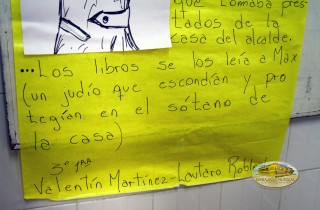 que tomaba pres-
tados de la
casa del alcalde.
...Los libros se los leía a Max
(un judío que escondían y pro
tegían en el sótano de
la casa)
3º
Valentín Martinez-Lautaro